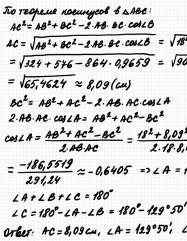 По теореме косинусов в ΔАВС:
AC² = AB² + BC² - 2·AB·BC·cosLB
AC = √AB² + BC² - 2·AB·BC·cosLB = √18²
= √324 + 576 - 864·0,9659 = √90
= √65,4624 ≈ 8,09 (см)
BC² = AB² + AC² - 2·AB·AC·cosLA
2·AB·AC·cosLA = AB² + AC² - BC²
cosLA = AB² + AC² - BC² / 2·AB·AC = 18² + 8,09² / 2·18·8,
= -186,5519 / 291,24 ≈ -0,6405 ⇒ LA =
LA + LB + LC = 180°
LC = 180° - LA - LB = 180° - 129°50'
Ответ: AC = 8,09см, LA = 129°50', L